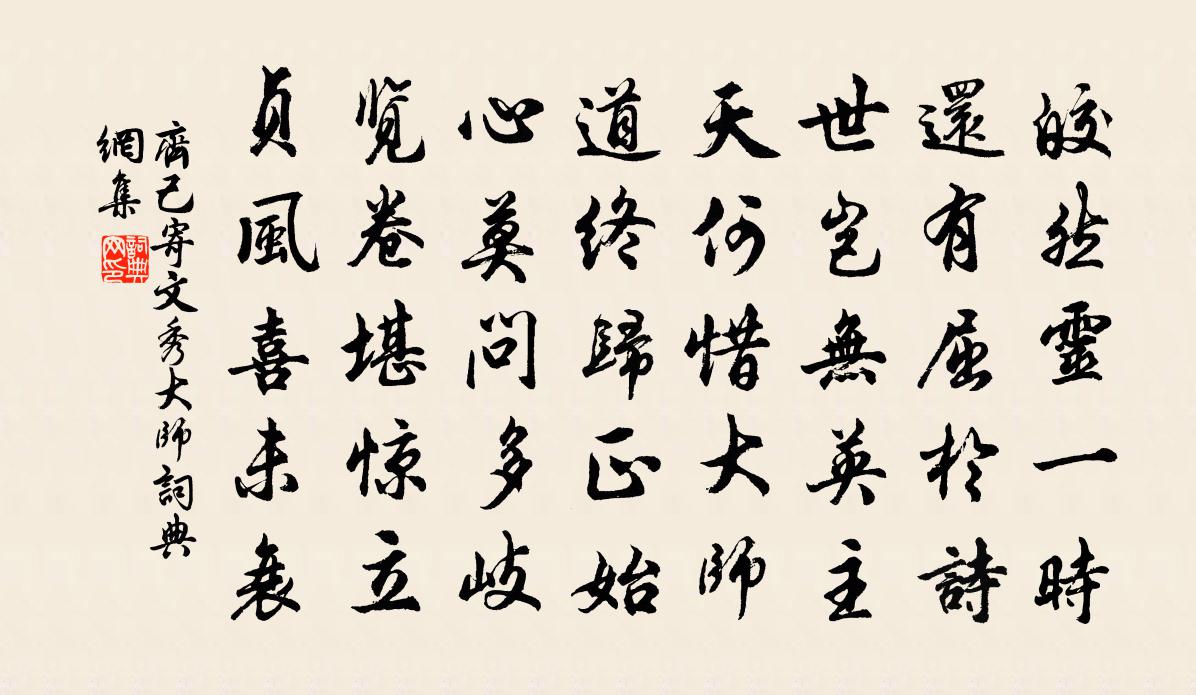 皎然靈一時
還有屈於詩
世豈無英主
天何惜大師
道終歸正始
心莫問多岐
覽卷堪惊立
貞風喜未衰
齊己寄文秀大師詞典
網集
詞典
网印